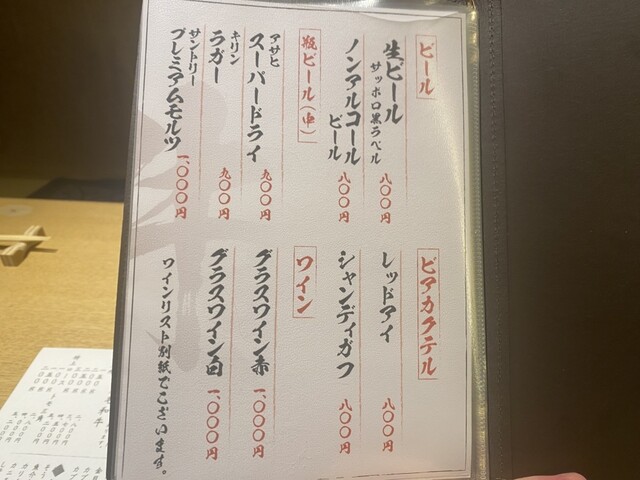 ビール
生ビール
サッポロ黒ラベル
八〇〇円
ノンアルコール
ビール
八〇〇円
瓶ビール(中)
アサヒ
スーパードライ
九〇〇円
キリン
ラガー
九〇〇円
サントリー
プレミアムモルツ
一、〇〇〇円
ビアカクテル
レッドアイ
八〇〇円
シャンディガフ
八〇〇円
ワイン
グラスワイン赤
一、〇〇〇円
グラスワイン白
一、〇〇〇円
ワインリスト別紙でございます。